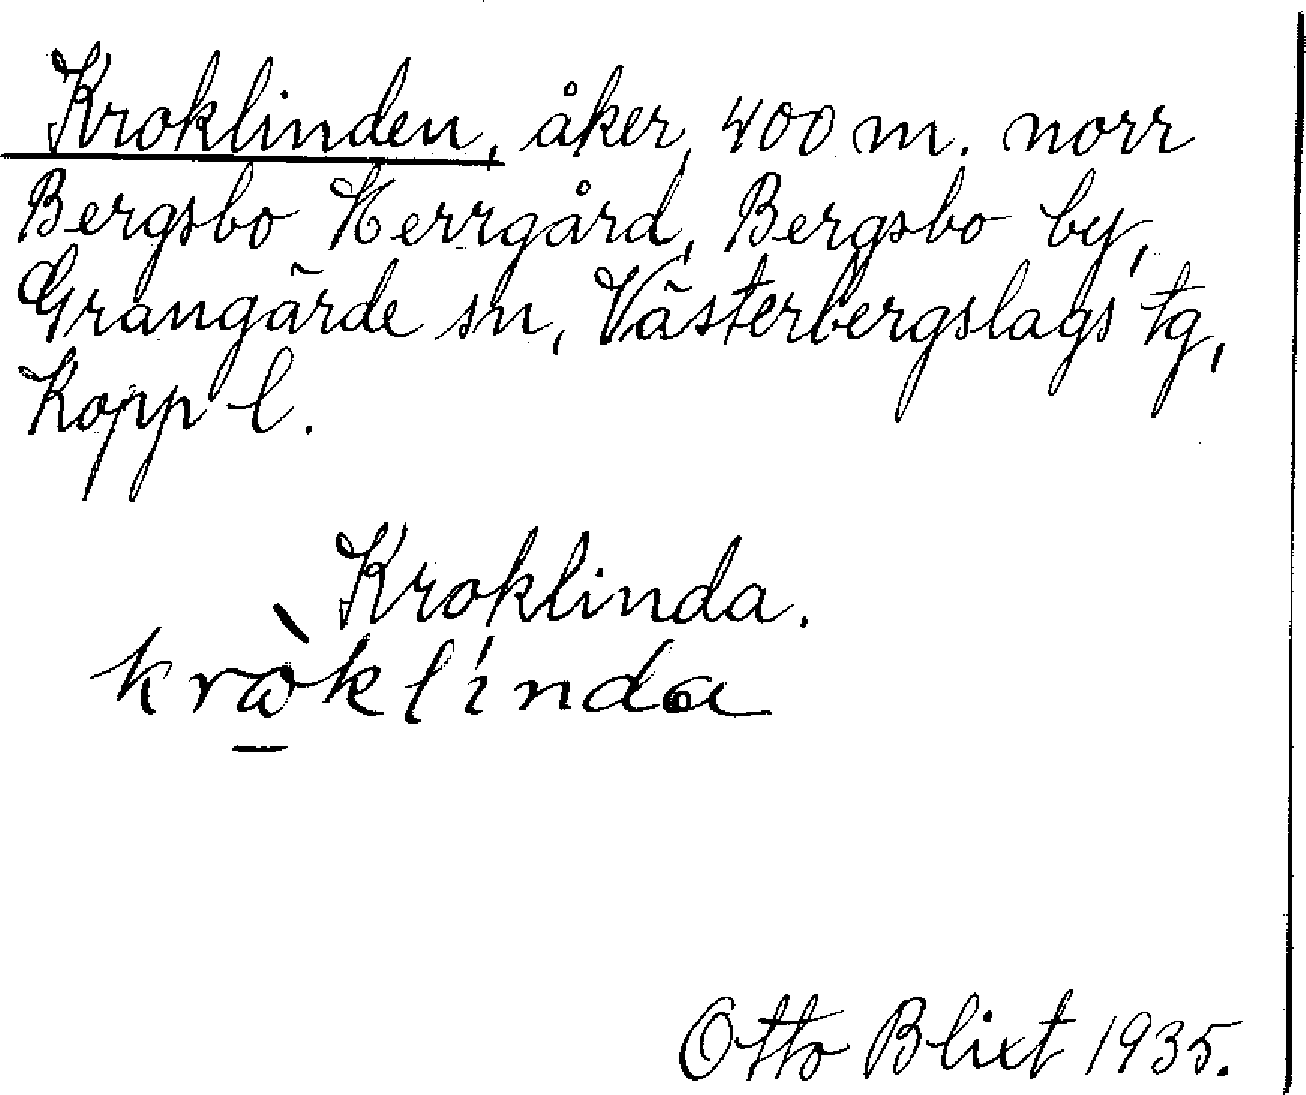 Kroklinden, åker, 400 m. norr
Bergsbo Herrgård, Bergsbo by,
Grangärde sn, Västerbergslags tg,
Kopp l.
Kroklinda.
krɷ̀klinda
Otto Blixt 1935.